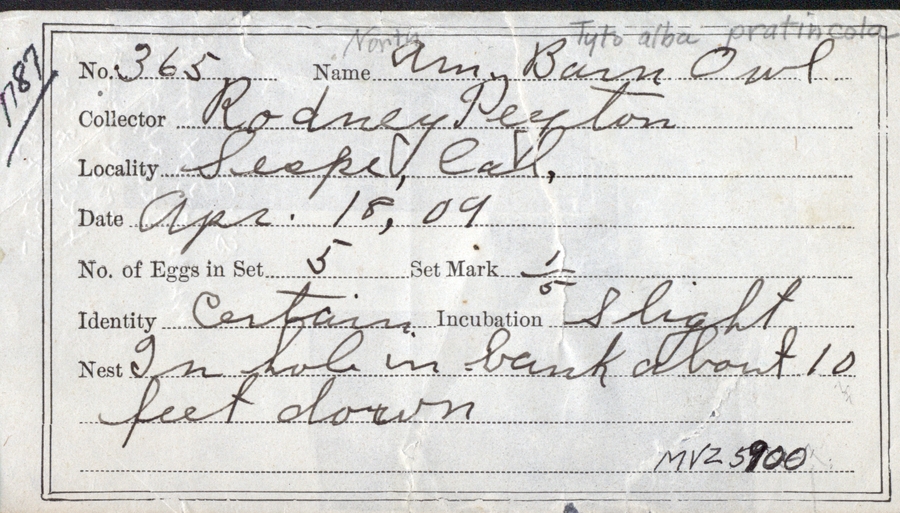 1787
North Tyto alba pratincola
No. 365 Name Am. Barn Owl
Collector Rodney Peyton
Locality Sespe, Cal,
Date Apr. 18, 09
No. of Eggs in Set 5 Set Mark 1/5
Identity Certain. Incubation Slight
Nest In hole in bank about 10
feet down
MVZ 5900